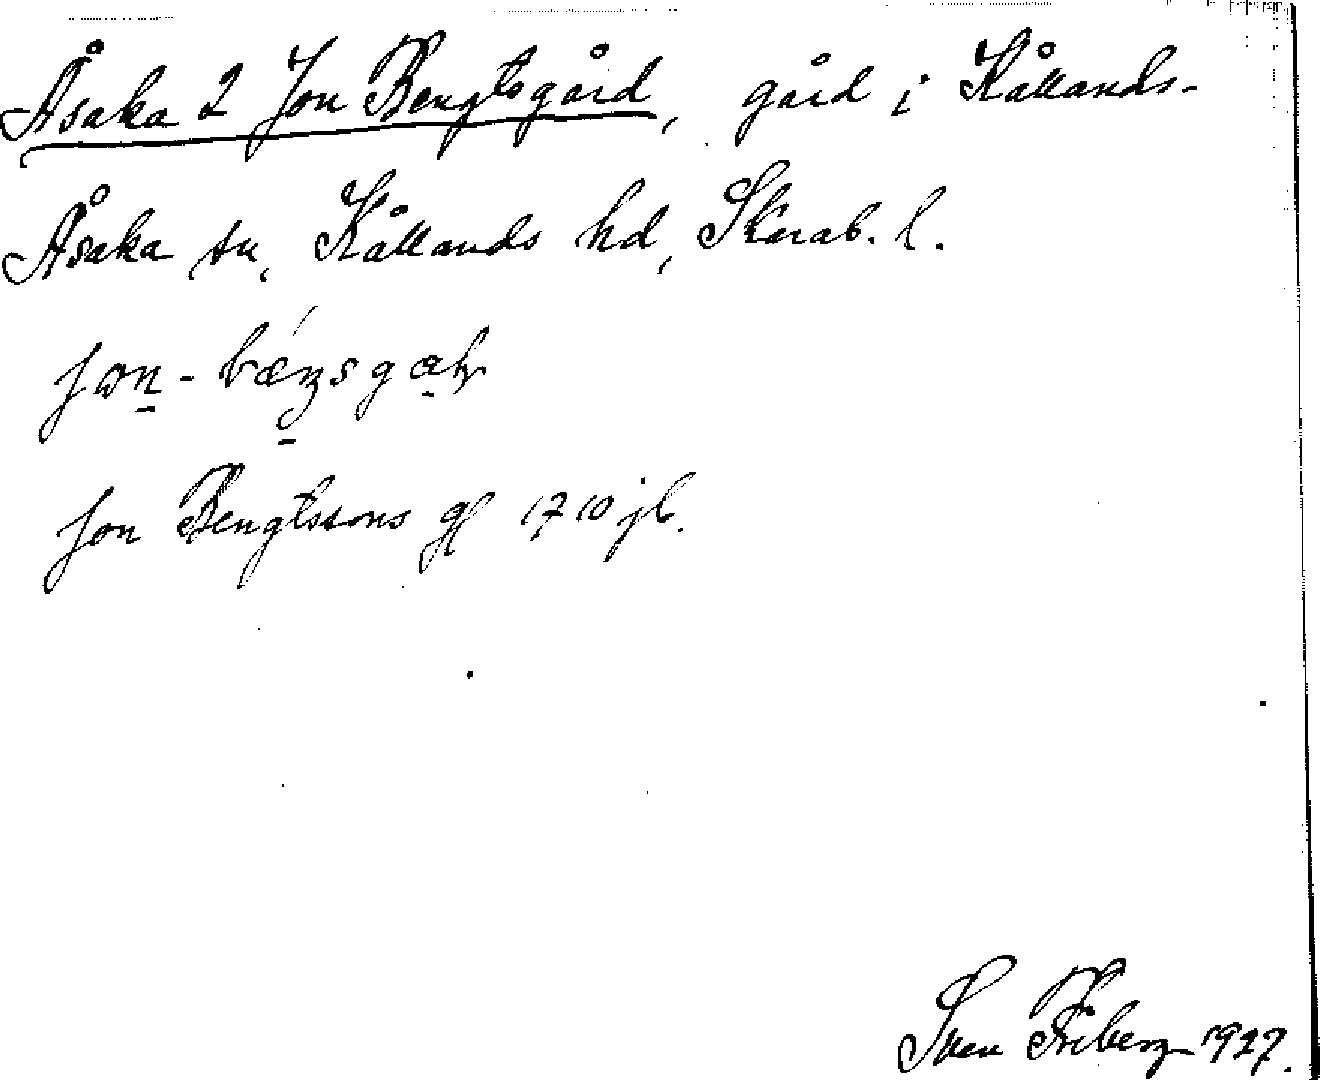 Åsaka 2 Jon Bengtsgård, gård i Kållands-
Åsaka sn, Kållands hd, Skarab. l.
Jon Bengtssons gd 1710 jb.
Sven Friberg 1927.